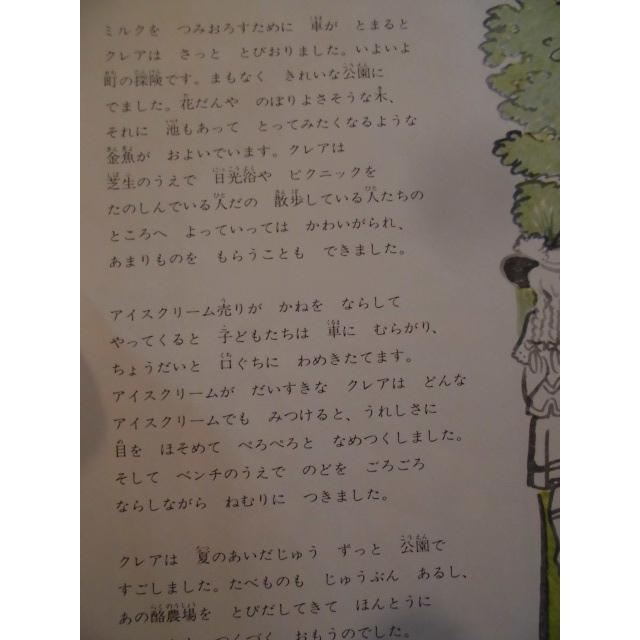 ミルクを　つみおろすために　車が　とまると
クレアは　さっと　とびおりました。いよいよ
町の探険です。まもなく　きれいな公園に
でました。花だんや　のぼりよさそうな木、
それに　池もあって　とってみたくなるような
金魚が　およいでいます。クレアは
芝生のうえで　日光浴や　ピクニックを
たのしんでいる人だの　散歩している人たちの
ところへ　よっていっては　かわいがられ、
あまりものを　もらうことも　できました。
アイスクリーム売りが　かねを　ならして
やってくると　子どもたちは　車に　むらがり、
ちょうだいと　口ぐちに　わめきたてます。
アイスクリームが　だいすきな　クレアは　どんな
アイスクリームでも　みつけると、うれしさに
目を　ほそめて　ぺろぺろと　なめつくしました。
そして　ベンチのうえで　のどを　ごろごろ
ならしながら　ねむりに　つきました。
クレアは　夏のあいだじゅう　ずっと　公園で
すごしました。たべものも　じゅうぶん　あるし、
あの酪農場を　とびだしてきて　ほんとうに
つくづく　おもうのでした。